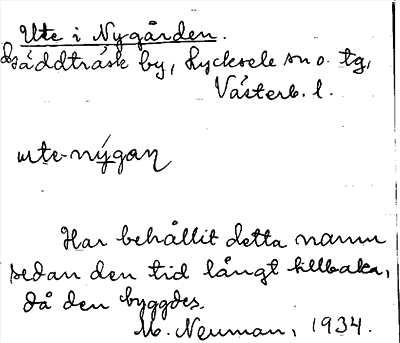 Ute i Nygården.
Gäddträsk by, Lycksele sn o. tg,
Västerb. l.
ute-nýgaɲ
Har behållit detta namn
sedan den tid långt tillbaka,
då den byggdes.
M. Neuman, 1934.